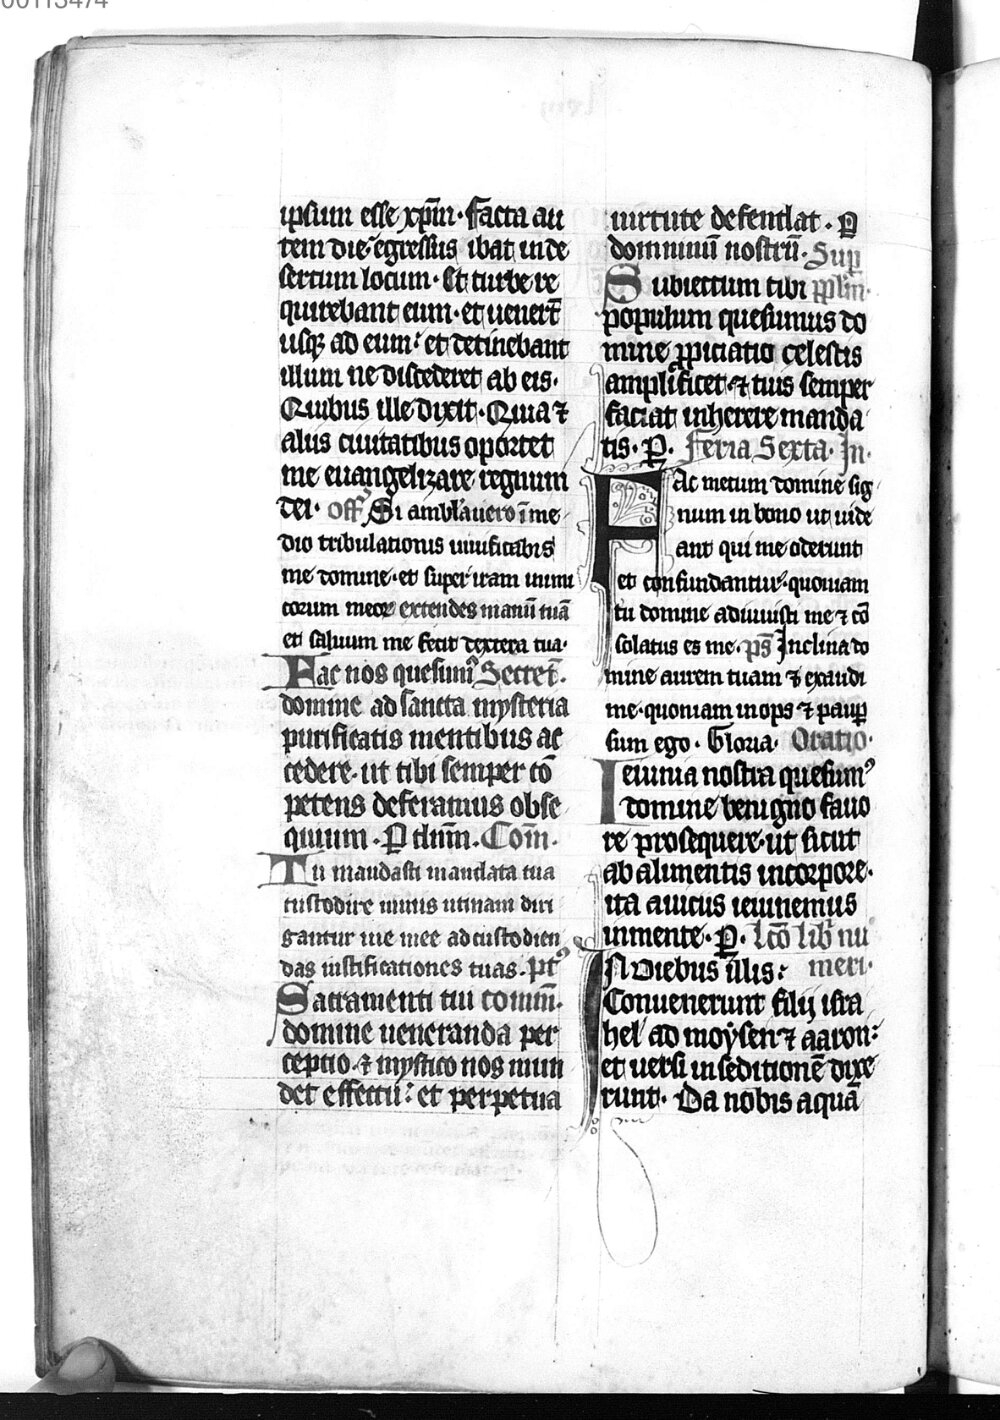 00113474
ipsum esse xp̄m · Facta au
tem die egressus ibat in de
sertum locum · Et turbe re
quirebant eum · et uenerūt
usqȝ ad eum : et detinebant
illum ne discederet ab eis ·
Quibus ille dixit · Quia ⁊
aliis ciuitatibus oportet
me euangelizare regnum
dei · off᷒ Si amblauero ī me
dio tribulationis uiuificabis
me domine · et super iram inimi
corum meoꝝ extendes manū tuā
et saluum me fecit dextera tua ·
Fac nos quesumꝰ Secret̄ ·
domine ad sancta mysteria
purificatis mentibus ac
cedere · ut tibi semper cō
petens deferamus obse
quium · P dn̄m · Com̄ ·
Tu mandasti mandata tua
custodire nimis utinam diri
gantur uie mee ad custodien
das iustificationes tuas · pꝰt
Sacramenti tui comm̄ ·
domine ueneranda per
ceptio · ⁊ mystico nos mun
det effectu : et perpetua
uirtute defendat · P
dominum nostrū · Sup
Subiectum tibi ppl̄m ·
populum quesumus do
mine ꝓpiciatio celestis
amplificet · ⁊ tuis semper
faciat inherere manda
tis · P̱ · Feria Sexta · In ·
Fac mecum domine sig
num in bono ut uide
ant qui me oderunt
et confundantur · quoniam
tu domine adiuuisti me ⁊ cō
solatus es me · ps̄ Inclina do
mine aurem tuam ⁊ exaudi
me · quoniam inops ⁊ paup̱
sum ego · Gloria · Oratio ·
Ieiunia nostra quesumꝰ
domine benigno fauo
re prosequere · ut sicut
ab alimentis in corpore ·
ita a uiciis ieiunemus
in mente · P̱ · Lc̄o lib̄ nu
IN diebus illis : meri ·
Conuenerunt filij isra
hel ad moẏsen ⁊ aaron :
et uersi in seditionē dixe
runt · Da nobis aquā